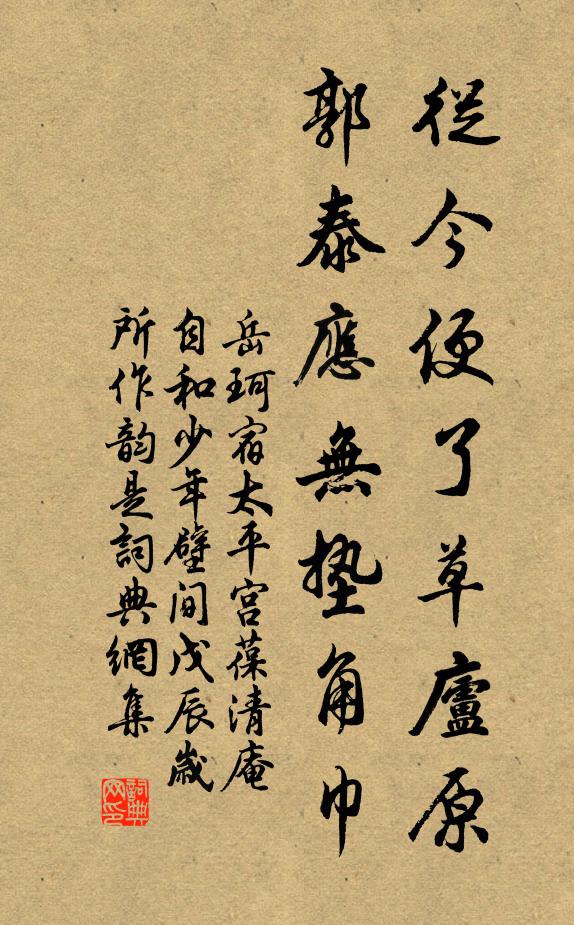 從今便了草廬原
郭泰應無墊角巾
岳珂宿太平宮葆清庵
自和少年壁间戊辰歲
所作韵是詞典網集
詞典
网印